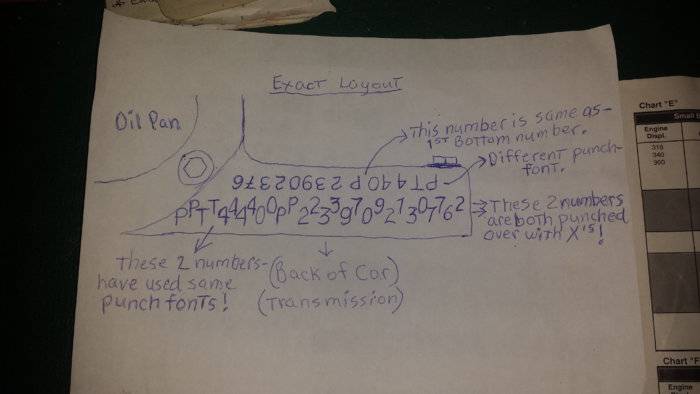 Exact Layout
Oil Pan
This number is same as-
1ST Bottom number.
Different punch-
font.
PT440P23902376
PPTT444400PP2233970921307762
These 2 numbers
are both punched
over with X's!
These 2 numbers-
have used same
punch fonts!
(Back of Car)
(Transmission)
Chart "E"
Engine
Displ.
318
340
360
Chart "F
Engine